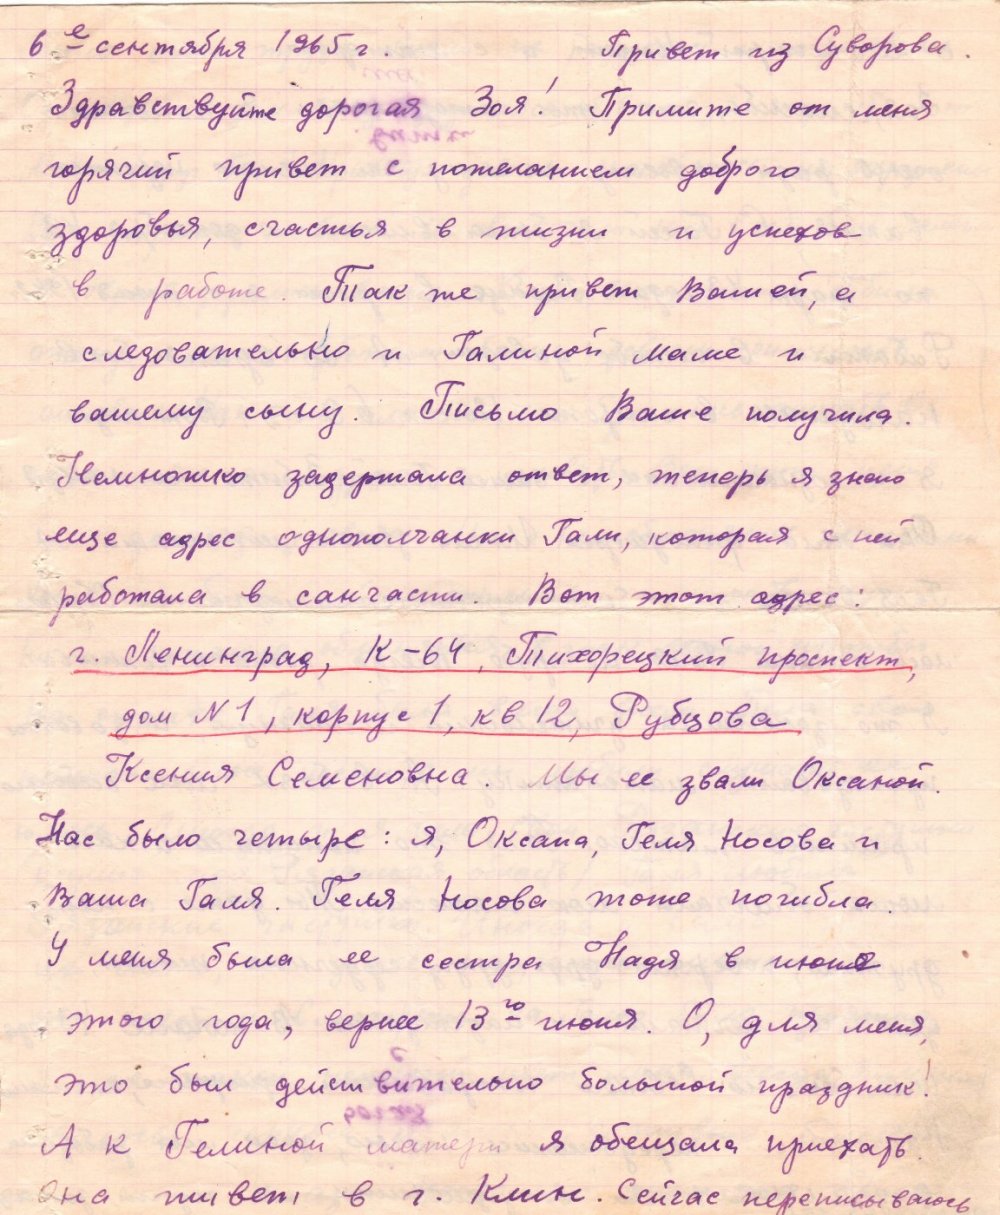 6 е сентября 1965 г. Привет из Суворова.
Здравствуйте дорогая Зоя! Примите от меня
горячий привет с пожеланием доброго
здоровья, счастья в жизни и успехов
в работе. Так же привет Вашей, а
следовательно и Галиной маме и
вашему сыну. Письмо Ваше получила.
Немножко задержала ответ, теперь я знаю
еще адрес однополчанки Гали, которая с ней
работала в санчасти. Вот этот адрес:
г. Ленинград, К-64, Тихорецкий проспект,
дом N 1, корпус 1, кв 12, Рубцова
Ксения Семеновна. Мы ее звали Оксаной.
Нас было четыре: я, Оксана, Геля Носова и
Ваша Галя. Геля Носова тоже погибла.
У меня была ее сестра Надя в июне
этого года, вернее 13 го июня. О, для меня,
это был действительно большой праздник!
А к Гелиной матери я обещала приехать.
Она живет в г. Клин. Сейчас переписываюсь